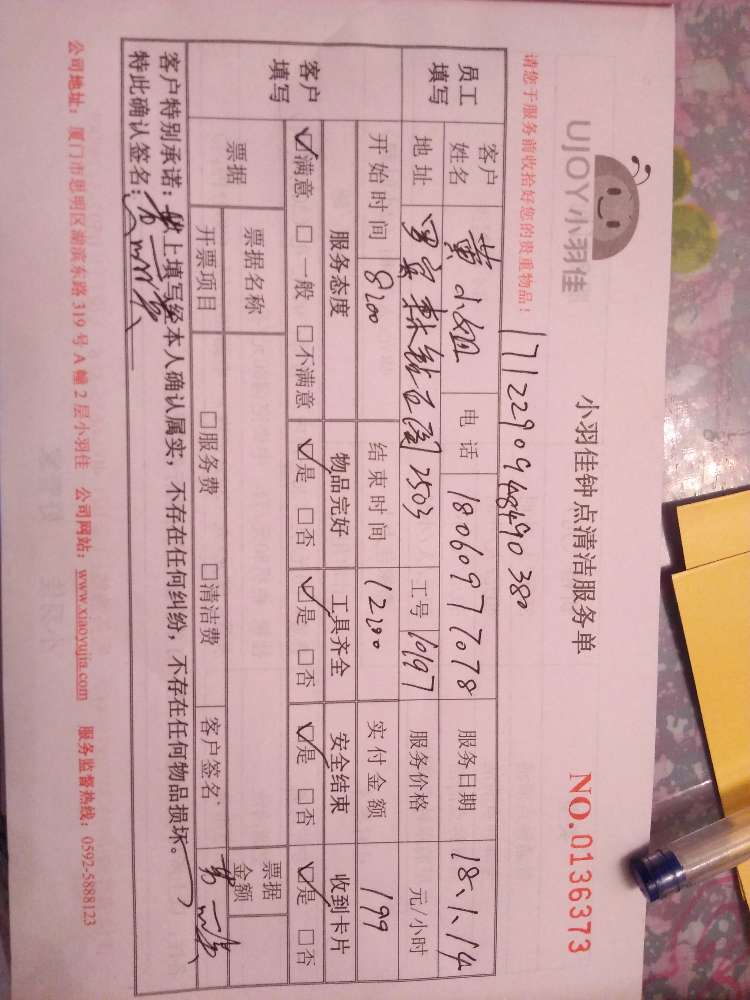 UJOY小羽佳
小羽佳钟点清洁服务单
NO.0136373
请您于服务前收拾好您的贵重物品！
171229094848490380
员工填写 客户姓名 黄小姐 电话 18060977078 服务日期 18.1.14
地址 2503 工号 服务价格 元/小时
开始时间 8:00 结束时间 12:00 实付金额 199
客户填写 服务态度 物品完好 工具齐全 安全结束 收到卡片
☑满意 □一般 □不满意 ☑是 □否 ☑是 □否 ☑是 □否 ☑是 □否
票据 票据名称 票据金额
开票项目 □服务费 □清洁费 客户签名
客户特别承诺：以上填写经本人确认属实，不存在任何纠纷，不存在任何物品损坏。
特此确认签名：
公司地址：厦门市思明区湖滨东路319号A幢2层小羽佳 公司网站：www.xiaoyujia.com 服务监督热线：0592-5888123